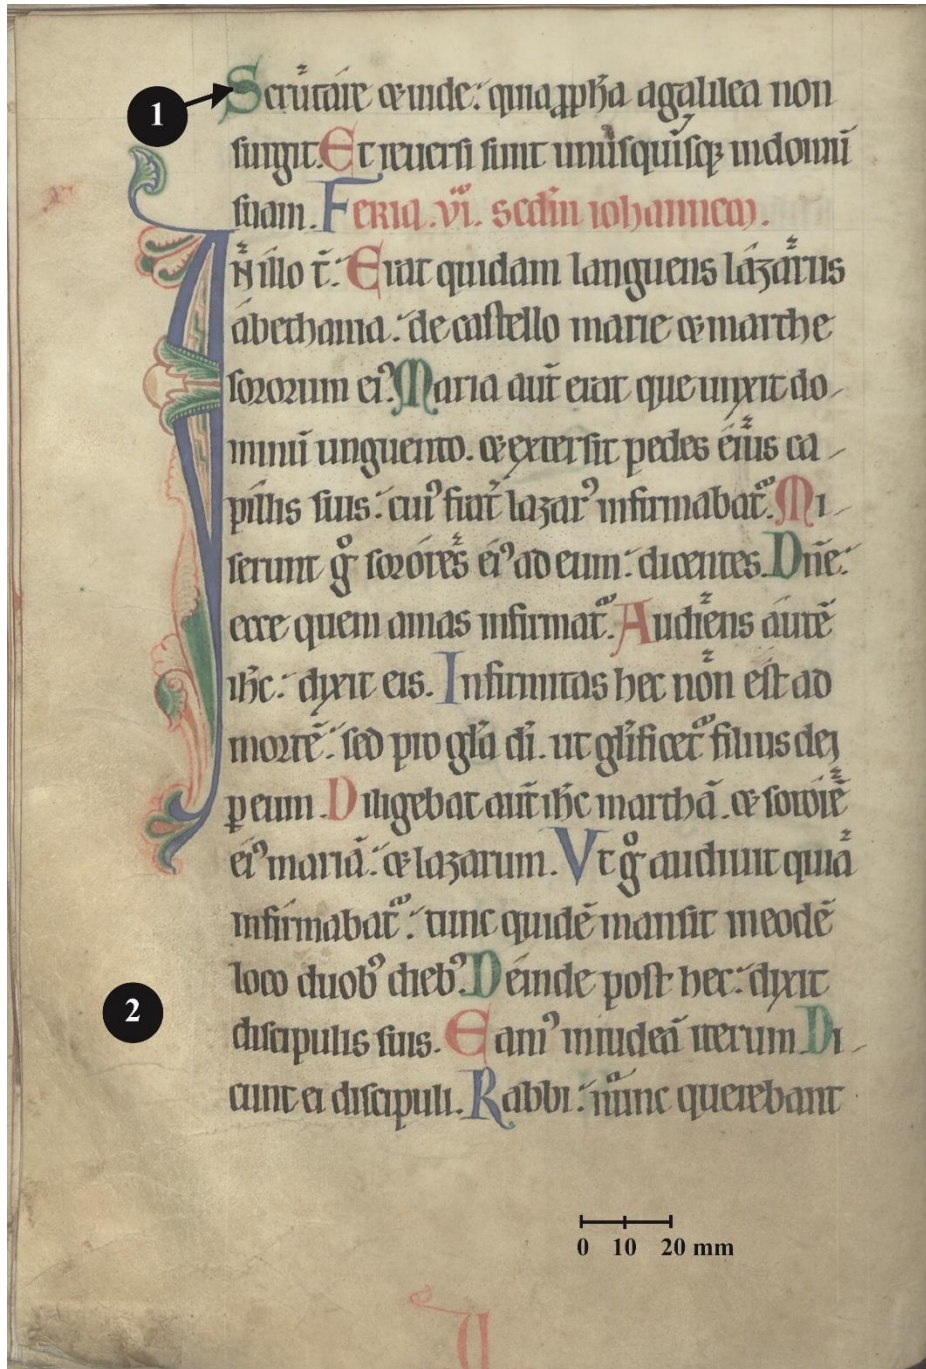 1
Scrũtare &uide: quia ꝓph̃a agalilea non
surgit. Et reuersi sunt unusquisqꝫ indomũ
suam. Feria .vi. scdm iohannem.
IN illo t̃: Erat quidam languens lázarus
ábethania: de castello marie & marthe
sororum eiꝰ. Maria aut̃ erat que unxit do-
minũ unguento. & extersit pedes eius ca-
pillis suis: cuiꝰ frat̃ lazarꝰ infirmabat᷑. Mi-
serunt gͦ sorores eiꝰ ad eum: dicentes. Dñe:
ecce quem amas infirmat᷑. Audiens autẽ
ih̃c: dixit eis. Infirmitas hec non est ad
mortẽ: sed pro gl̃a di. ut glificet᷑ filius dei
ꝑeum. Diligebat aut̃ ih̃c marthã. & sororẽ
eiꝰ mariã: & lazarum. Vt gͦ audiuit quia
infirmabat᷑: tunc quidẽ mansit ineodẽ
2
loco duobꝰ diebꝰ. Deinde post hec: dixit
discipulis suis. Eamꝰ iniudeã iterum. Di-
cunt ei discipuli. Rabbi: nunc querebant
0 10 20 mm